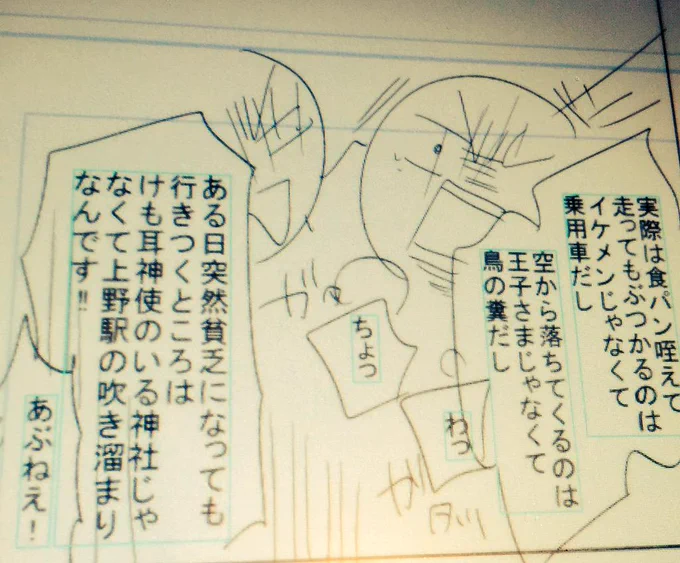 実際は食パン咥えて
走ってもぶつかるのは
イケメンじゃなくて
乗用車だし
空から落ちてくるのは
王子さまじゃなくて
鳥の糞だし
わっ
ちょっ
ガ
ガ
ある日突然貧乏になっても
行きつくところは
けも耳神使のいる神社じゃ
なくて上野駅の吹き溜まり
なんです!!
あぶねえ！